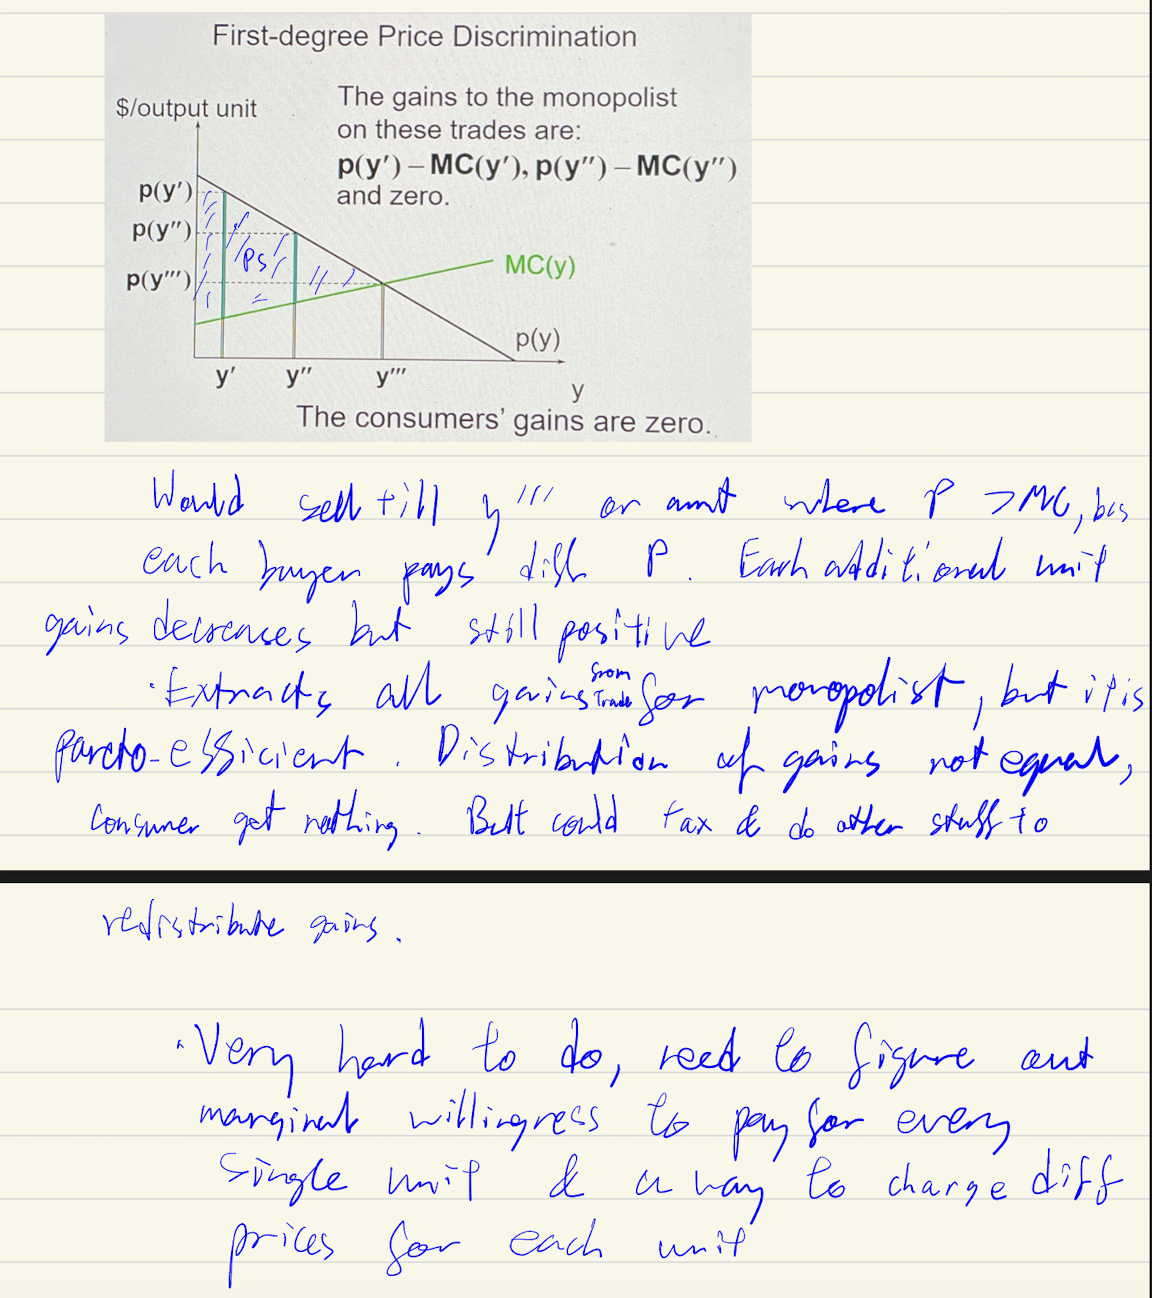 First-degree Price Discrimination
$/output unit
The gains to the monopolist
on these trades are:
p(y′) – MC(y′), p(y″) – MC(y″)
and zero.
p(y′)
p(y″)
PS
p(y‴)
MC(y)
p(y)
y′ y″ y‴
y
The consumers’ gains are zero.
Would sell till y''' or amt where P >MC, bcs
each buyer pays diff P. Each additional unit
gains decreases but still positive
·Extracts all gains from Trade for monopolist, but it is
pareto-efficient. Distribution of gains not equal,
consumer get nothing. But could tax & do other stuff to
redistribute gains.
·Very hard to do, need to figure out
marginal willingness to pay for every
single unit & a way to charge diff
prices for each unit